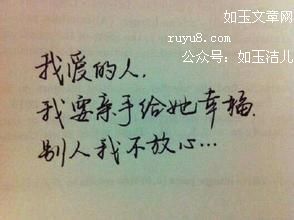 如玉文章网
ruyu8.com
公众号：如玉洁儿
我爱的人.
我要亲手给她幸福.
别人我不放心…